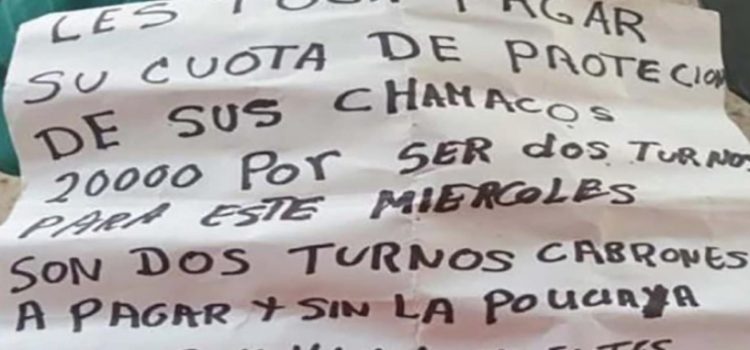 LES TOCA PAGAR
SU CUOTA DE PROTECION
DE SUS CHAMACOS
20000 POR SER dOS TURNOS
PARA ESTE MIERCOLES
SON DOS TURNOS CABRONES
A PAGAR Y SIN LA POLICIA YA